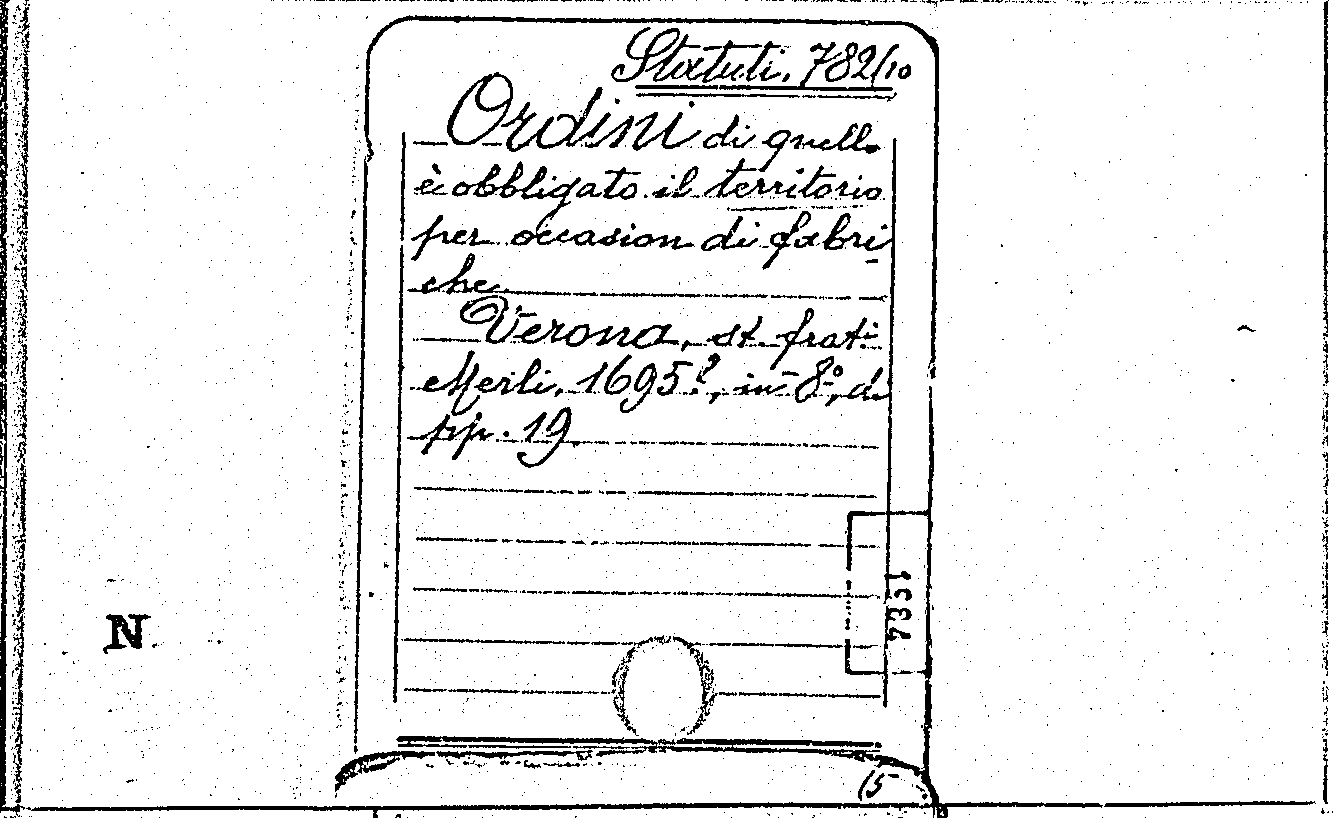 Statuti. 782/10
Ordini di quello
è obbligato il territorio
per occasion di fabri-
che.
Verona, st. frati
Merli, 1695?, in-8º, di
pp. 19.
7331
N
15